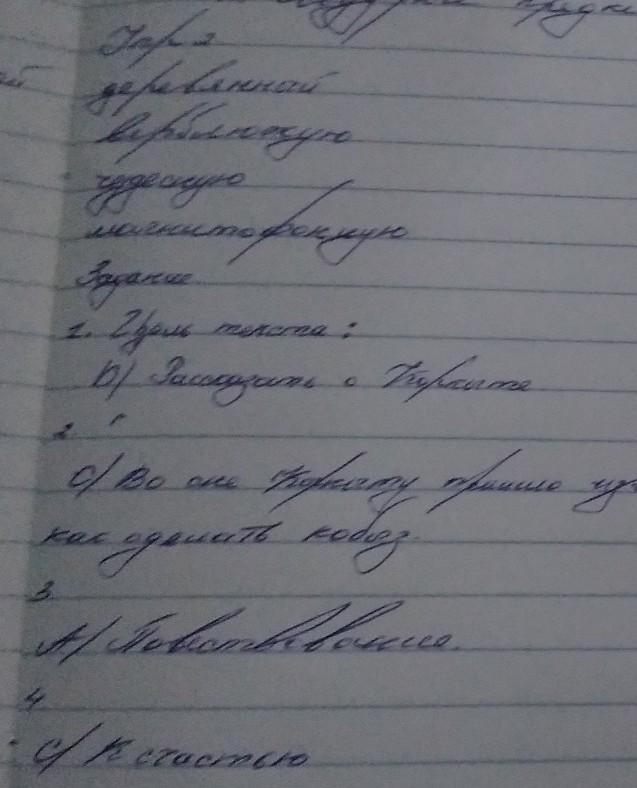 Упр 2
деревянной
верблюжую
чудесную
магнитофонную
Задание
1. Цель текста:
D) Рассказать о Коркыте
2.
С) Во сне Коркыту пришло
как сделать кобыз.
3.
А) Повествование.
4
С) К счастью